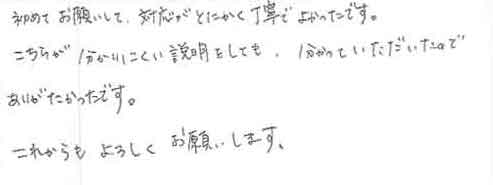 初めてお願いして、対応がとにかく丁寧でよかったです。
こちらが分かりにくい説明をしても、分かっていただいたので
ありがたかったです。
これからもよろしくお願いします。